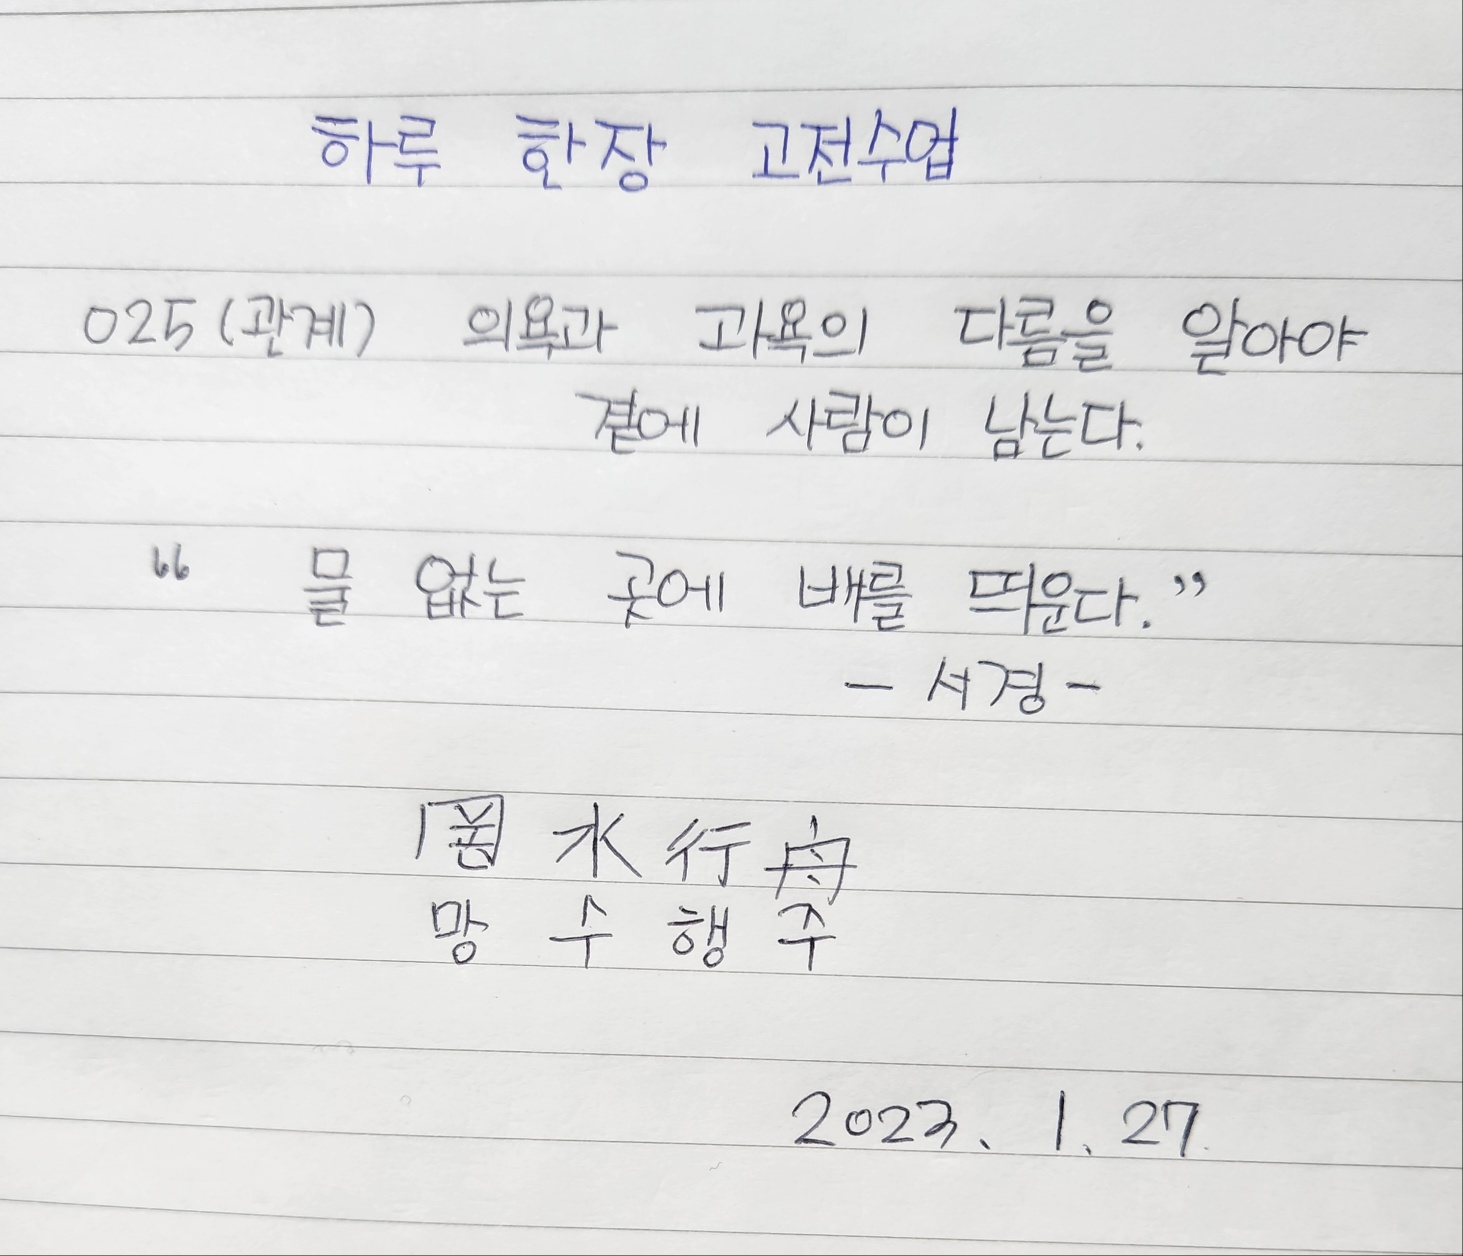 하루 한장 고전수업
025(관계) 의욕과 과욕의 다름을 알아야
곁에 사람이 남는다.
“ 물 없는 곳에 배를 띄운다.”
- 서경 -
罔水行舟
망수행주
2023. 1. 27